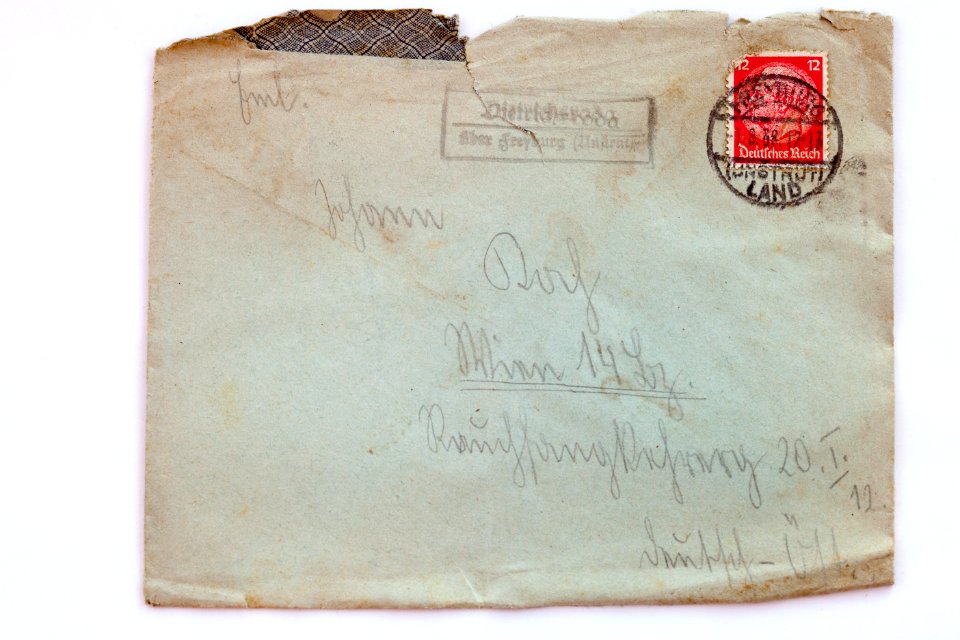 12 12
Deutsches Reich
(UNSTRUT)
LAND
Dietrichsroda
über Freyburg (Unstrut)
Johann
Koch
Wien 14 Bz.
Rauchfangkehrerg 20. I.
12.
Deutsch-Öst.